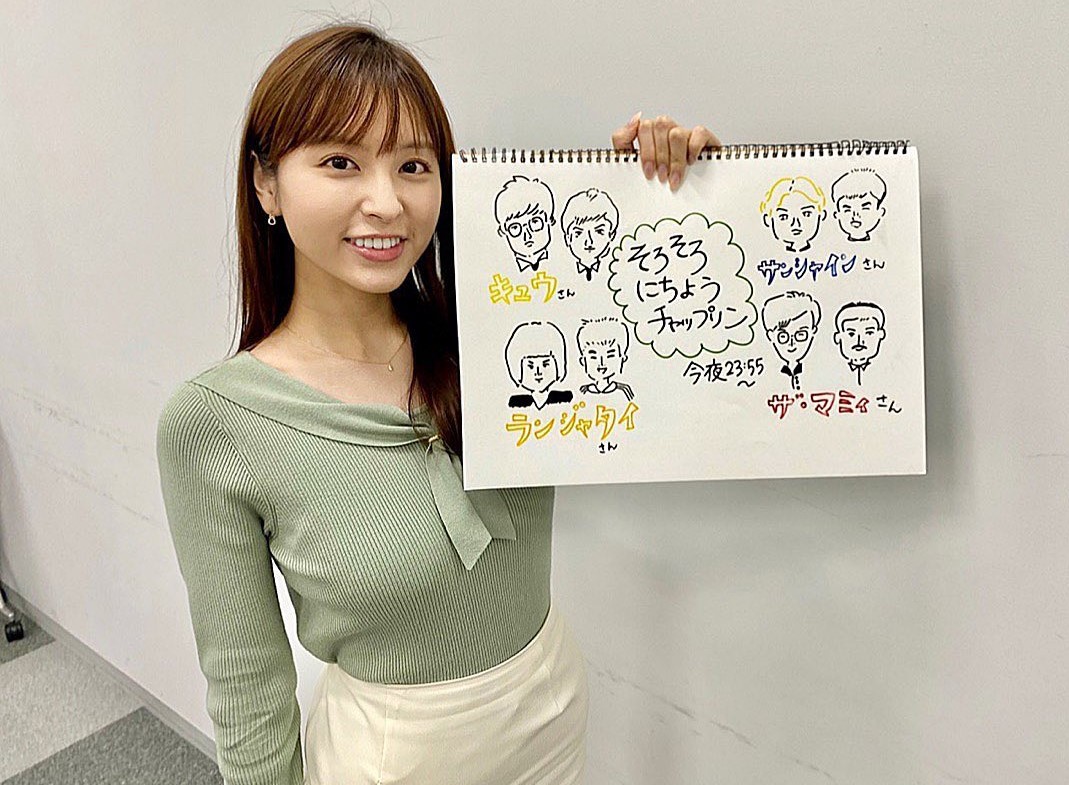 キュウさん
そろそろ
にちよう
チャップリン
サンシャインさん
今夜23:55
~
ランジャタイ
さん
ザ・マミィさん